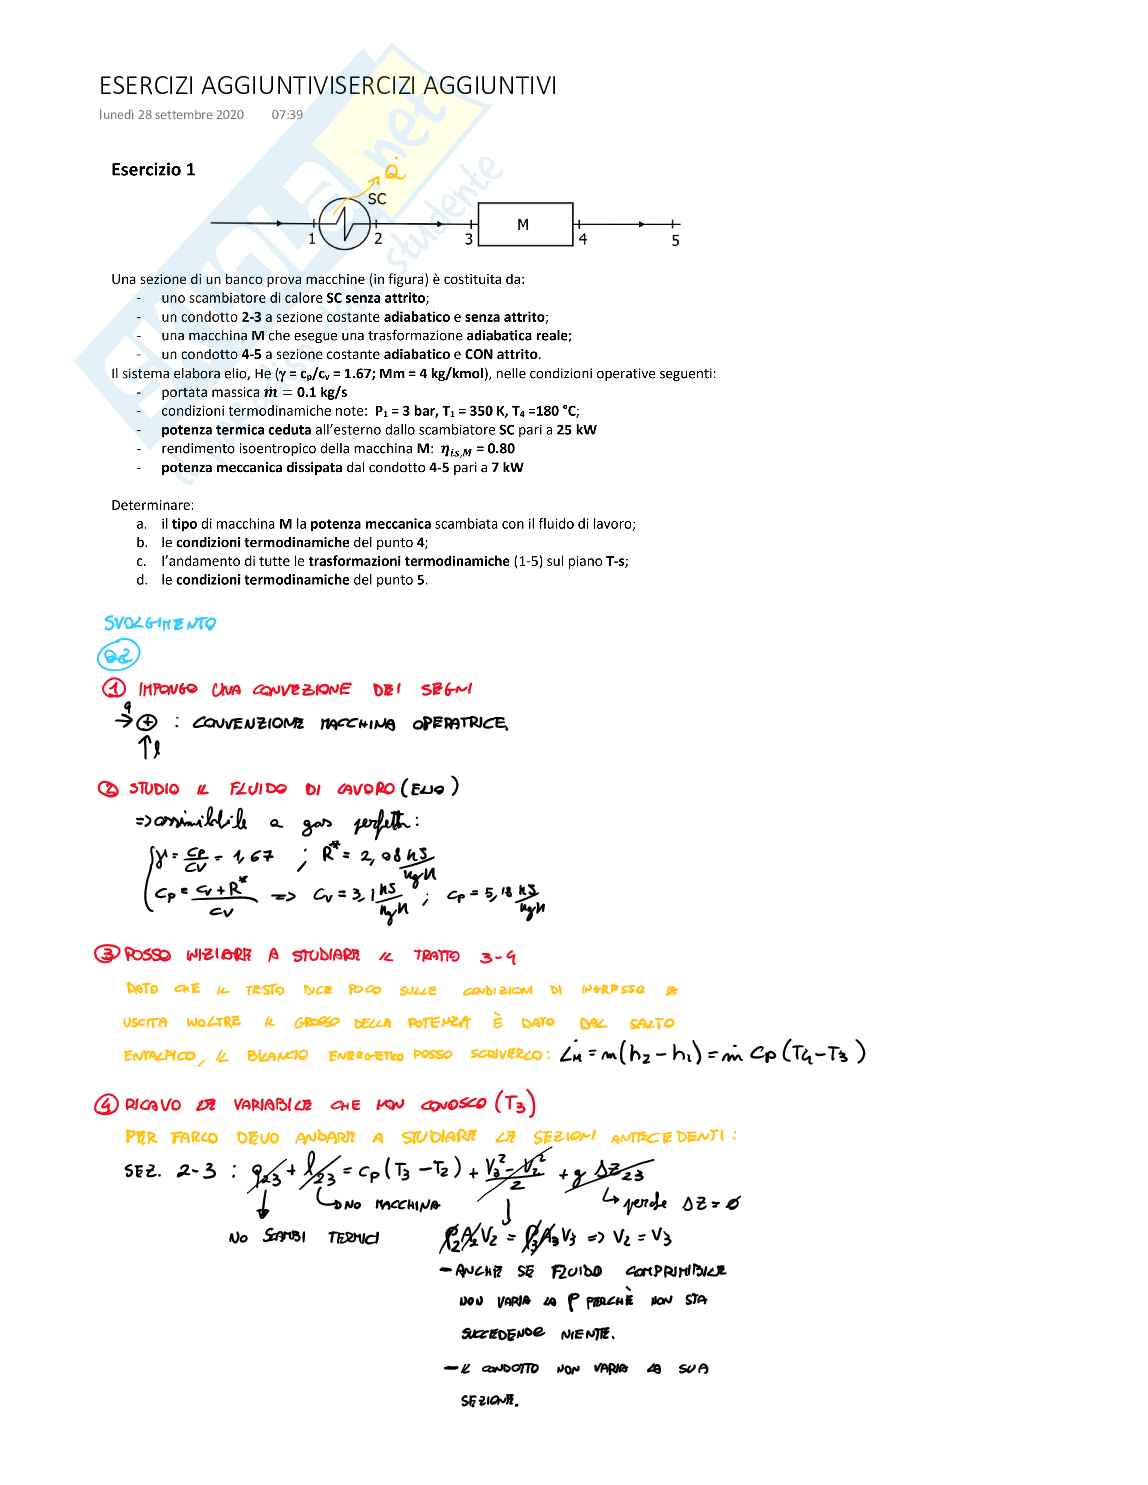 ESERCIZI AGGIUNTIVISERCIZI AGGIUNTIVI
lunedì 28 settembre 2020 07:39
Esercizio 1
Q̇
SC
1 2 3 M 4 5
Una sezione di un banco prova macchine (in figura) è costituita da:
- uno scambiatore di calore SC senza attrito;
- un condotto 2-3 a sezione costante adiabatico e senza attrito;
- una macchina M che esegue una trasformazione adiabatica reale;
- un condotto 4-5 a sezione costante adiabatico e CON attrito.
Il sistema elabora elio, He (γ = cp/cv = 1.67; Mm = 4 kg/kmol), nelle condizioni operative seguenti:
- portata massica ṁ = 0.1 kg/s
- condizioni termodinamiche note: P1 = 3 bar, T1 = 350 K, T4 =180 °C;
- potenza termica ceduta all'esterno dallo scambiatore SC pari a 25 kW
- rendimento isoentropico della macchina M: ηis,M = 0.80
- potenza meccanica dissipata dal condotto 4-5 pari a 7 kW
Determinare:
a. il tipo di macchina M la potenza meccanica scambiata con il fluido di lavoro;
b. le condizioni termodinamiche del punto 4;
c. l'andamento di tutte le trasformazioni termodinamiche (1-5) sul piano T-s;
d. le condizioni termodinamiche del punto 5.
SVOLGIMENTO
① IMPONGO UNA CONVEZIONE DEI SEGNI
q
→ ⊕ : CONVENZIONE MACCHINA OPERATRICE
↑ l
② STUDIO IL FLUIDO DI LAVORO (ELIO)
=> assimibile a gas perfetti:
γ = cp/cv = 1,67 ; R* = 2,08 kJ/kgK
cp = cv + R*/cv => cv = 3,1 kJ/kgK ; cp = 5,18 kJ/kgK
③ POSSO INIZIARE A STUDIARE IL TRATTO 3-4
DATO CHE IL TESTO DICE POCO SULLE CONDIZIONI DI INGRESSO E
USCITA INOLTRE IL GROSSO DELLA POTENZA È DATO DAL SALTO
ENTALPICO, IL BILANCIO ENERGETICO POSSO SCRIVERLO: L̇M = ṁ(h2 - h1) = ṁ cp (T4 - T3)
④ RICAVO LE VARIABILE CHE NON CONOSCO (T3)
PER FARLO DEVO ANDARE A STUDIARE LE SEZIONI ANTECEDENTI:
SEZ. 2-3 : q23 + l23 = cp (T3 - T2) + V3² - V2²/2 + g ΔZ23
NO MACCHINA perche ΔZ = 0
NO SCAMBI TERMICI ρ2A2V2 = ρ3A3V3 => V2 = V3
- ANCHE SE FLUIDO COMPRIMIBILE
NON VARIA LA ρ PERCHÈ NON STA
SUCCEDENDO NIENTE.
- IL CONDOTTO NON VARIA LA SUA
SEZIONE.